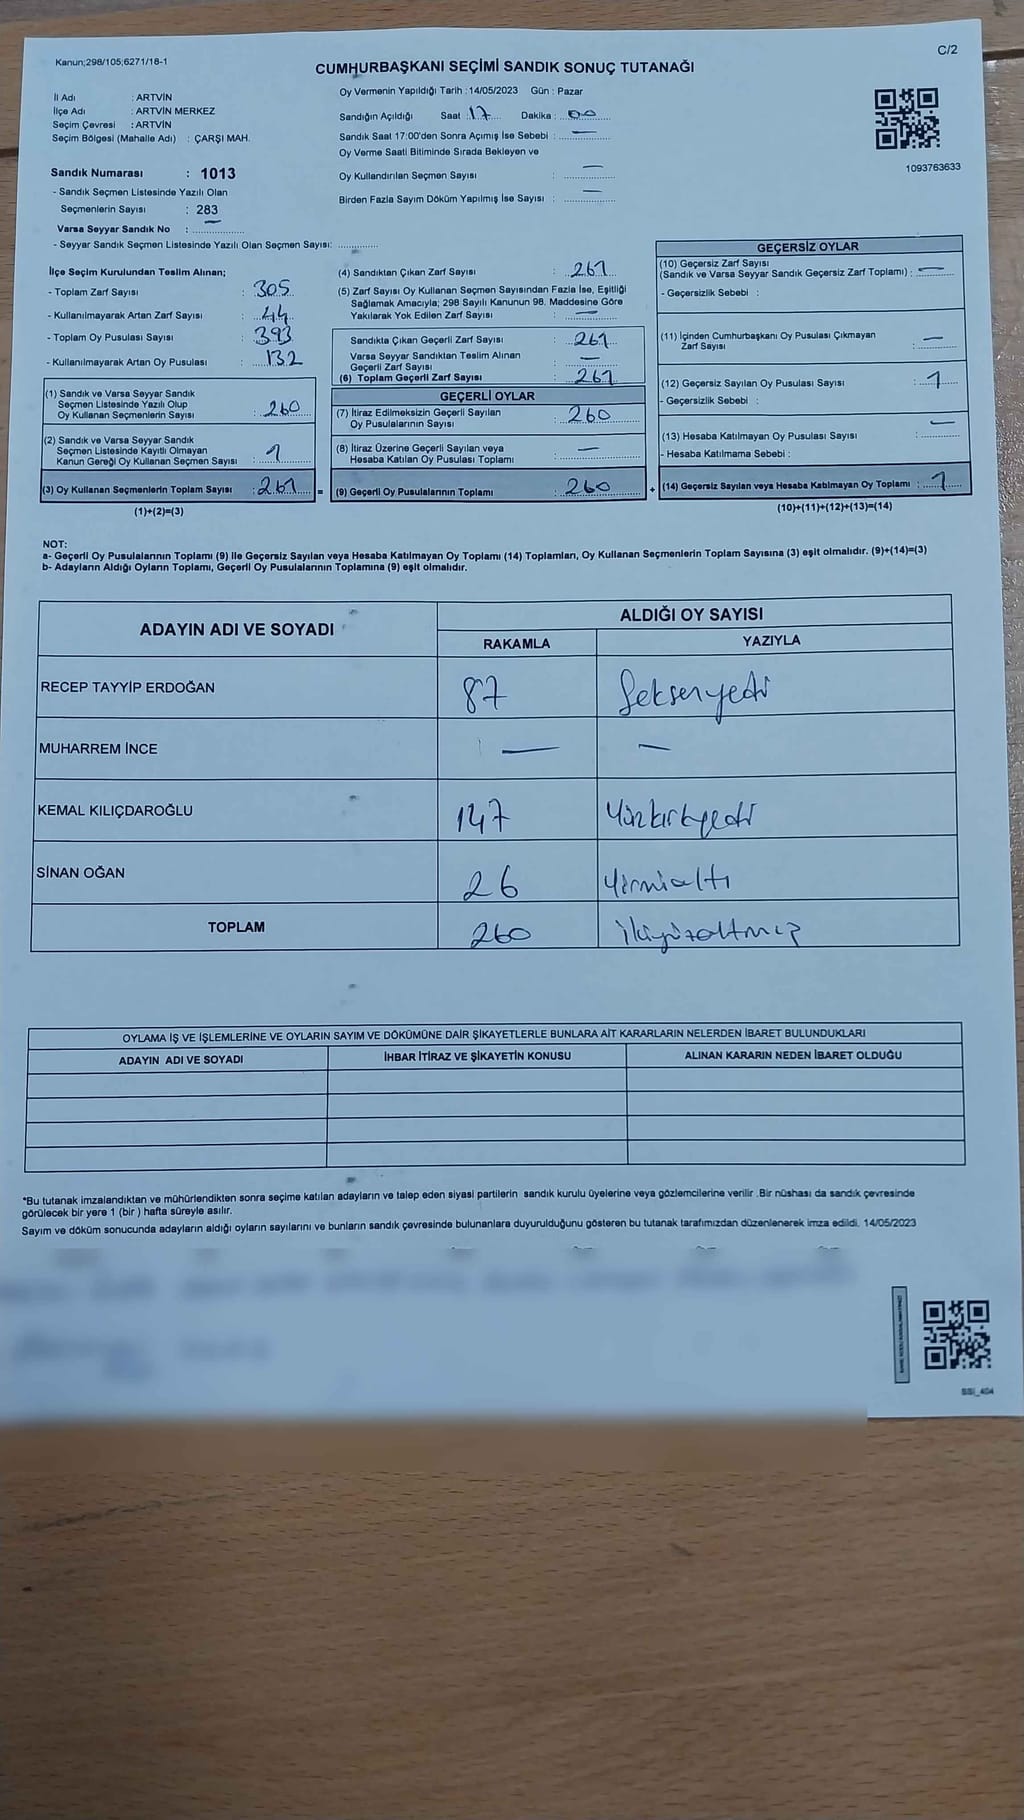 Kanun;298/105;6271/18-1
C/2
CUMHURBAŞKANI SEÇİMİ SANDIK SONUÇ TUTANAĞI
İl Adı : ARTVİN
İlçe Adı : ARTVİN MERKEZ
Seçim Çevresi : ARTVİN
Seçim Bölgesi (Mahalle Adı) : ÇARŞI MAH.
Sandık Numarası : 1013
- Sandık Seçmen Listesinde Yazılı Olan
Seçmenlerin Sayısı : 283
Varsa Seyyar Sandık No : —
- Seyyar Sandık Seçmen Listesinde Yazılı Olan Seçmen Sayısı: ............
Oy Vermenin Yapıldığı Tarih :14/05/2023 Gün : Pazar
Sandığın Açıldığı Saat : 17 Dakika : 00
Sandık Saat 17:00'den Sonra Açımış İse Sebebi : —
Oy Verme Saati Bitiminde Sırada Bekleyen ve
Oy Kullandırılan Seçmen Sayısı : —
Birden Fazla Sayım Döküm Yapılmış İse Sayısı : —
1093763633
İlçe Seçim Kurulundan Teslim Alınan;
- Toplam Zarf Sayısı : 305
- Kullanılmayarak Artan Zarf Sayısı : 44
- Toplam Oy Pusulası Sayısı : 393
- Kullanılmayarak Artan Oy Pusulası : 132
(1) Sandık ve Varsa Seyyar Sandık
Seçmen Listesinde Yazılı Olup
Oy Kullanan Seçmenlerin Sayısı : 260
(2) Sandık ve Varsa Seyyar Sandık
Seçmen Listesinde Kayıtlı Olmayan
Kanun Gereği Oy Kullanan Seçmen Sayısı : 1
(3) Oy Kullanan Seçmenlerin Toplam Sayısı : 261 =
(1)+(2)=(3)
(4) Sandıktan Çıkan Zarf Sayısı : 261
(5) Zarf Sayısı Oy Kullanan Seçmen Sayısından Fazla İse, Eşitliği
Sağlamak Amacıyla; 298 Sayılı Kanunun 98. Maddesine Göre
Yakılarak Yok Edilen Zarf Sayısı : —
Sandıkta Çıkan Geçerli Zarf Sayısı : 261
Varsa Seyyar Sandıktan Teslim Alınan
Geçerli Zarf Sayısı : —
(6) Toplam Geçerli Zarf Sayısı : 261
GEÇERLİ OYLAR
(7) İtiraz Edilmeksizin Geçerli Sayılan
Oy Pusulalarının Sayısı : 260
(8) İtiraz Üzerine Geçerli Sayılan veya
Hesaba Katılan Oy Pusulası Toplamı : —
(9) Geçerli Oy Pusulalarının Toplamı : 260 +
GEÇERSİZ OYLAR
(10) Geçersiz Zarf Sayısı
(Sandık ve Varsa Seyyar Sandık Geçersiz Zarf Toplamı) : —
- Geçersizlik Sebebi :
(11) İçinden Cumhurbaşkanı Oy Pusulası Çıkmayan
Zarf Sayısı : —
(12) Geçersiz Sayılan Oy Pusulası Sayısı : 1
- Geçersizlik Sebebi :
(13) Hesaba Katılmayan Oy Pusulası Sayısı : —
- Hesaba Katılmama Sebebi :
(14) Geçersiz Sayılan veya Hesaba Katılmayan Oy Toplamı : 1
(10)+(11)+(12)+(13)=(14)
NOT:
a- Geçerli Oy Pusulalarının Toplamı (9) İle Geçersiz Sayılan veya Hesaba Katılmayan Oy Toplamı (14) Toplamları, Oy Kullanan Seçmenlerin Toplam Sayısına (3) eşit olmalıdır. (9)+(14)=(3)
b- Adayların Aldığı Oyların Toplamı, Geçerli Oy Pusulalarının Toplamına (9) eşit olmalıdır.
ADAYIN ADI VE SOYADI ALDIĞI OY SAYISI
RAKAMLA YAZIYLA
RECEP TAYYİP ERDOĞAN 87 Seksenyedi
MUHARREM İNCE — —
KEMAL KILIÇDAROĞLU 147 Yüzkırkyedi
SİNAN OĞAN 26 Yirmialtı
TOPLAM 260 ikiyüzaltmış
OYLAMA İŞ VE İŞLEMLERİNE VE OYLARIN SAYIM VE DÖKÜMÜNE DAİR ŞİKAYETLERLE BUNLARA AİT KARARLARIN NELERDEN İBARET BULUNDUKLARI
ADAYIN ADI VE SOYADI İHBAR İTİRAZ VE ŞİKAYETİN KONUSU ALINAN KARARIN NEDEN İBARET OLDUĞU
*Bu tutanak imzalandıktan ve mühürlendikten sonra seçime katılan adayların ve talep eden siyasi partilerin sandık kurulu üyelerine veya gözlemcilerine verilir .Bir nüshası da sandık çevresinde
görülecek bir yere 1 (bir ) hafta süreyle asılır.
Sayım ve döküm sonucunda adayların aldığı oyların sayılarını ve bunların sandık çevresinde bulunanlara duyurulduğunu gösteren bu tutanak tarafımızdan düzenlenerek imza edildi. 14/05/2023
SSİ_404